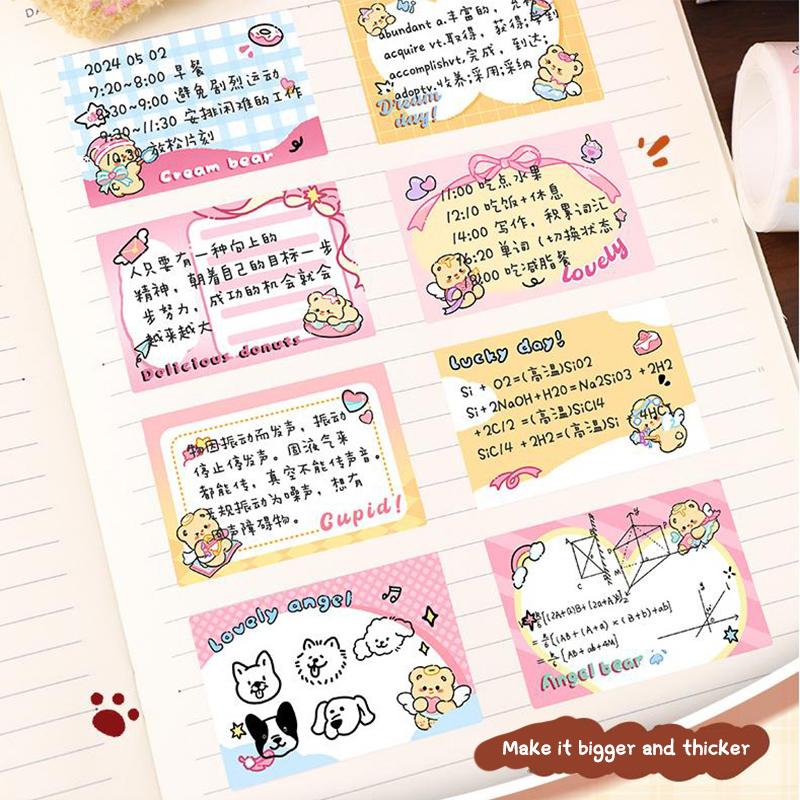 2024 05 02
7:20~8:00 早餐
8:30~9:00 避免剧烈运动
9:30~11:30 安排困难的工作
10:30 放松片刻
Cream bear
Hi
abundant a.丰富的,
acquire vt.取得, 获得;得到
accomplish vt.完成, 到达,
adopt v.收养;采用;采纳
Dream day!
人只要有一种向上的
精神, 朝着自己的目标一步
步努力, 成功的机会就会
越来越大
Delicious donuts
11:00 吃点水果
12:10 吃饭+休息
14:00 写作, 积累词汇
16:20 单词 (切换状态)
18:00 吃减脂餐
Lovely
物因振动而发声, 振动
停止停发声。固液气来
都能传, 真空不能传声音。
无规振动为噪声, 想有
声障碍物。
Cupid!
Lucky day!
Si + O2=(高温)SiO2
Si+2NaOH+H2O=Na2SiO3 +2H2
+2C/2 =(高温)SiC/4
SiC/4 +2H2=(高温)Si + 4HC
Lovely angel
C
[(2A+a)B+(2a+A)
=[(AB+(A+a) × (B+b)+ab]
=[AB+ab+4M]
Angel bear
Make it bigger and thicker